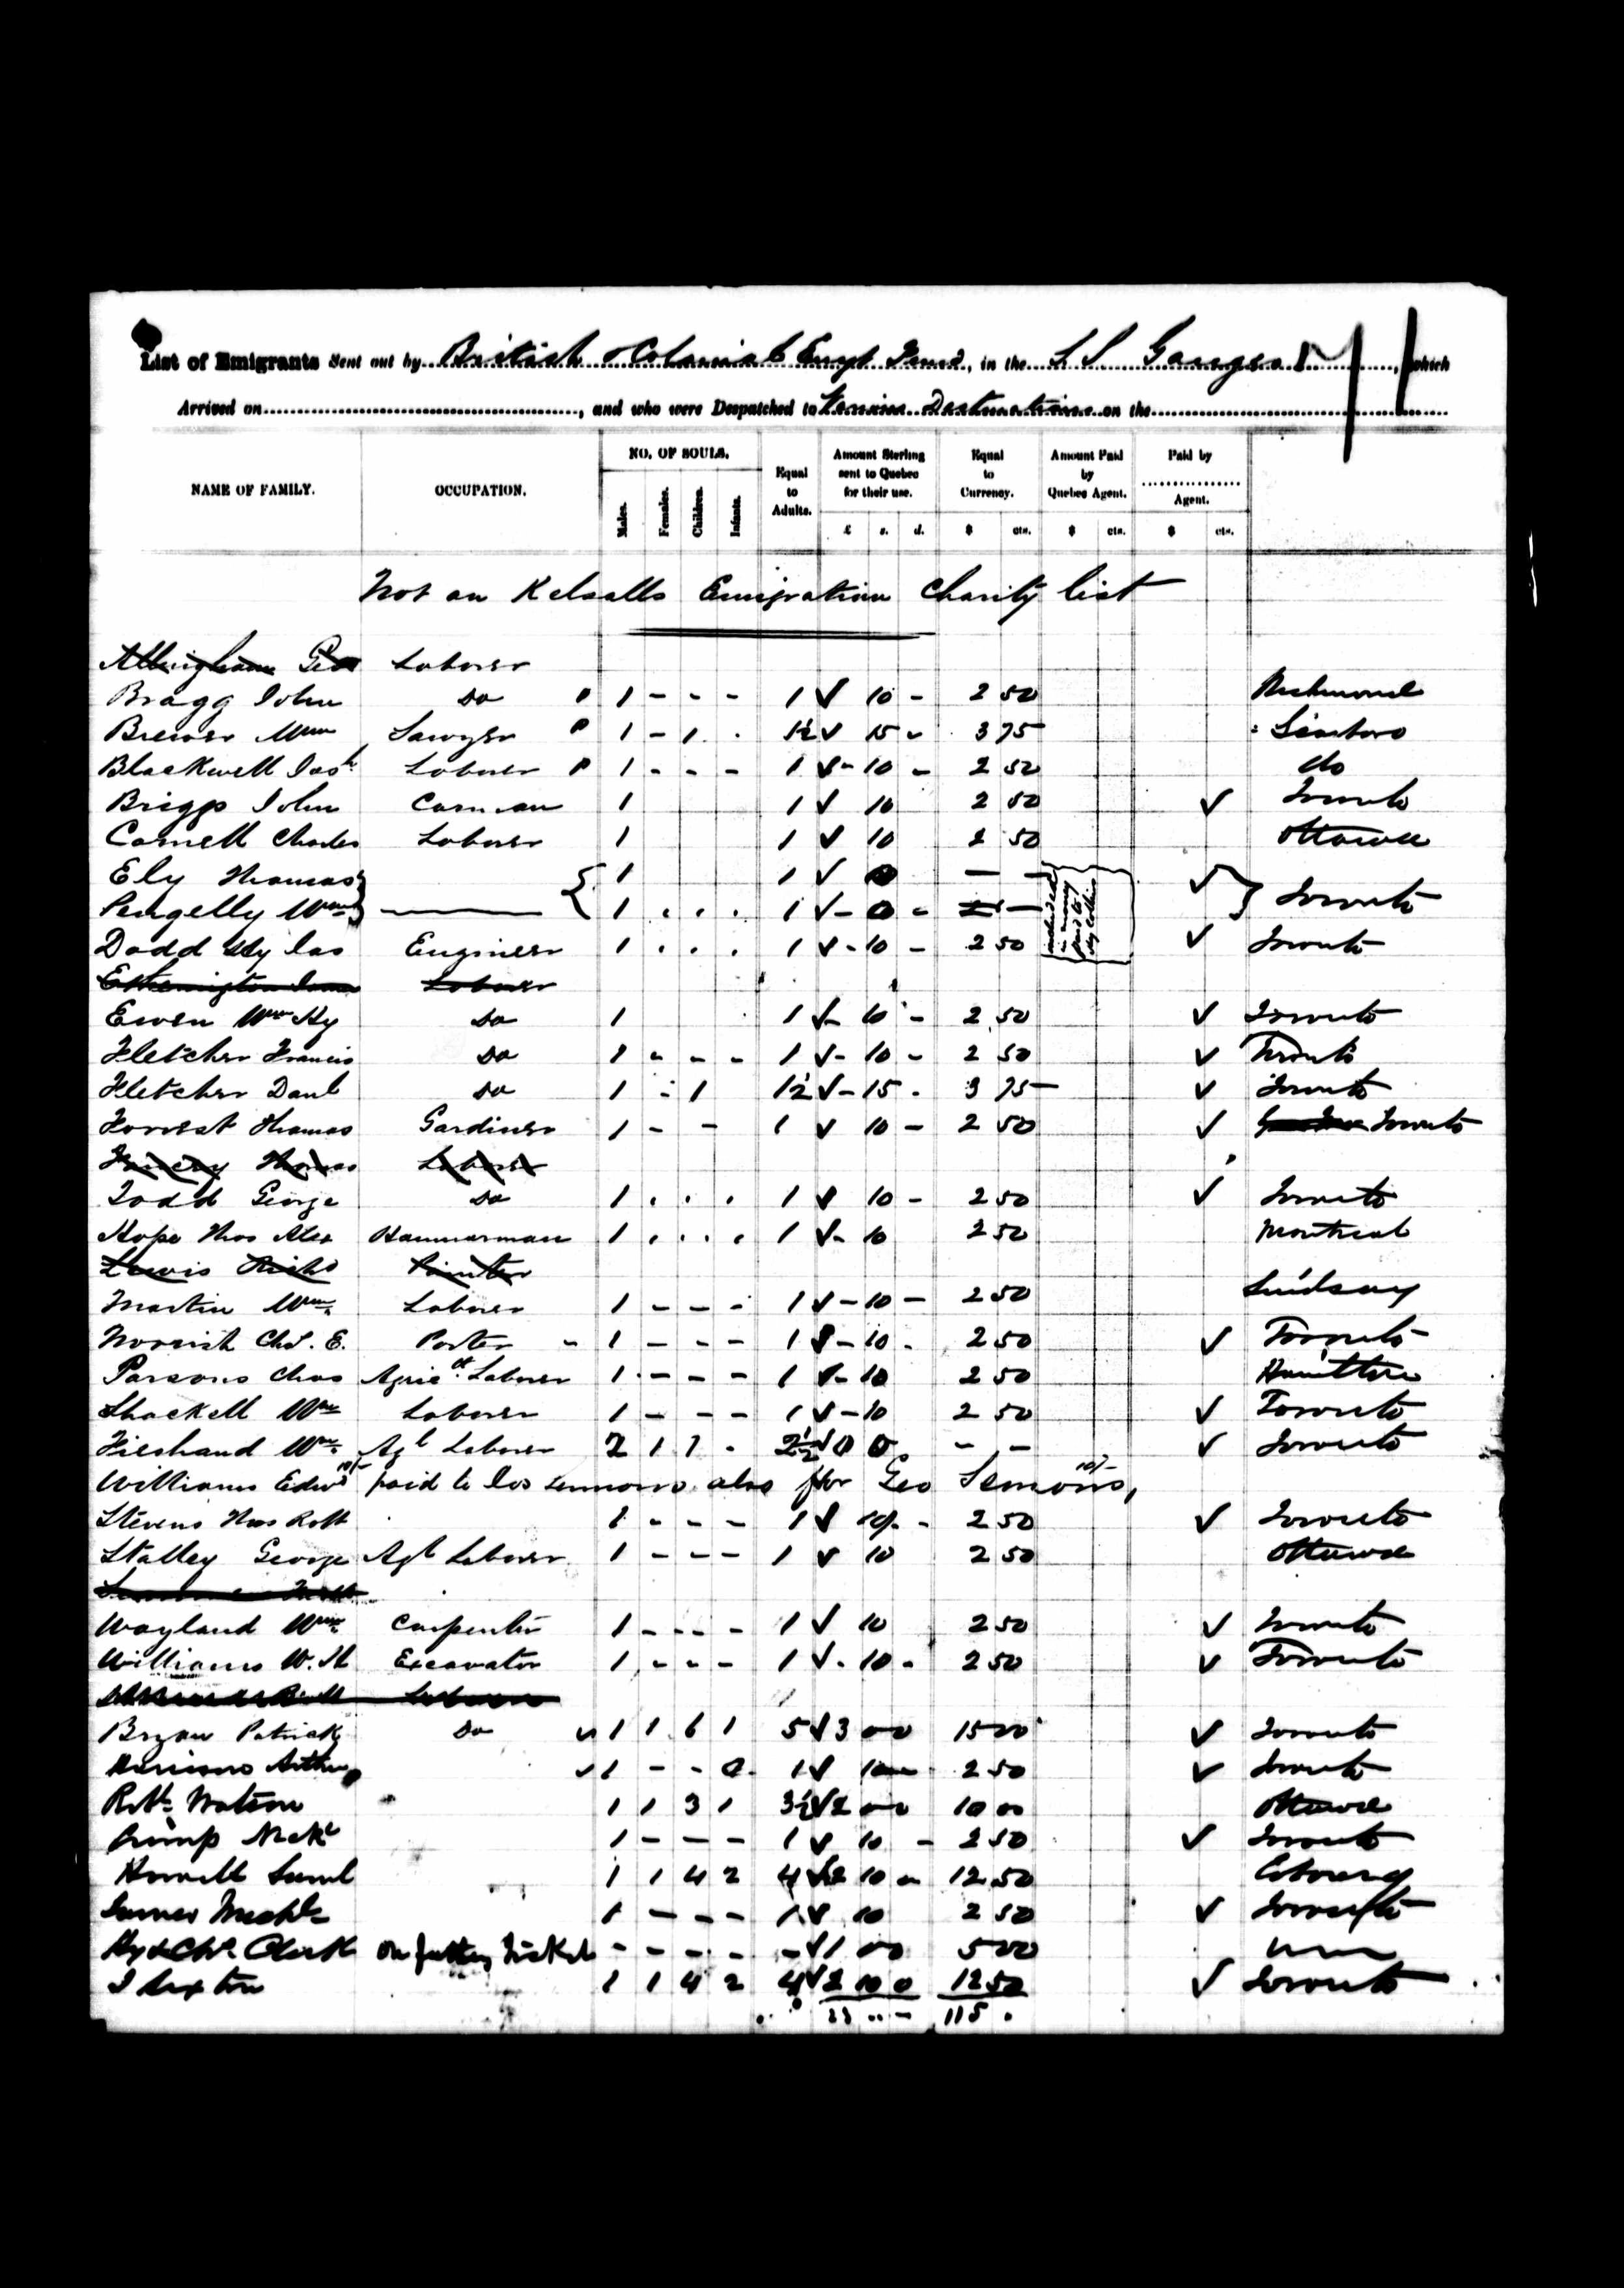 List of Emigrants Sent out by British & Colonial Emgt Fund, in the S S Ganges, which
Arrived on, and who were Despatched to Various Destinations on the
NAME OF FAMILY. OCCUPATION. NO. OF SOULS. Males. Females. Children. Infants. Equal to Adults. Amount Sterling sent to Quebec for their use. £ s. d. Equal to Currency. $ cts. Amount Paid by Quebec Agent. $ cts. Paid by Agent. $ cts.
Not on Kelsalls Emigration Charity list
Allingham Geo Laborer
Bragg John Do 1 - - - 1 ✓ 10 - 2 50 Richmond
Brewer Wm Sawyer 1 - 1 . 1½ ✓ 15 - 3 75
Blackwell Jas Laborer 1 - - - 1 ✓ - 10 - 2 50 do
Briggs John Carman 1 1 ✓ 10 2 50 ✓ Toronto
Cornell Charles Laborer 1 1 ✓ 10 2 50 Ottawa
Ely Thomas 1 1 ✓ 0 — — ✓
Pengelly Wm 1 . . . 1 ✓ - 0 - — Toronto
Dodd Hy Jas Engineer 1 . . . 1 ✓ - 10 - 2 50 ✓ Toronto
Laborer
Ewen Wm Hy Do 1 1 ✓ - 10 - 2 50 ✓ Toronto
Fletcher Francis Do 1 - - - 1 ✓ - 10 - 2 50 ✓ Toronto
Fletcher Danl Do 1 - 1 1½ ✓ - 15 - 3 75 ✓ Toronto
Forrest Thomas Gardiner 1 - - 1 ✓ 10 - 2 50 ✓ Toronto
Thomas Laborer
Todd George Do 1 . . . 1 ✓ 10 - 2 50 ✓ Toronto
Hope Thos Alex Hammerman 1 . . . . 1 ✓ - 10 2 50 Montreal
Lewis Richd Painter
Martin Wm Laborer 1 - - - 1 ✓ - 10 - 2 50 Lindsay
Norrish Chs. E. Porter 1 - - - 1 ✓ - 10 - 2 50 ✓ Toronto
Parsons Chas Agricl. Laborer 1 - - - 1 ✓ - 10 2 50 Hamilton
Shackell Wm Laborer 1 - - - 1 ✓ - 10 2 50 ✓ Toronto
Wm. Agl Laborer 2 1 1 - 2½ ✓ 0 0 - - ✓ Toronto
Williams Edwd 10/- paid to Jas Semmons also for Geo Semons, 10/-
Stevens Thos Robt 1 - - - 1 ✓ 10 - 2 50 ✓ Toronto
Stalley George Agl Laborer 1 - - - 1 ✓ 10 2 50 Ottawa
Wayland Wm. Carpenter 1 - - - 1 ✓ 10 2 50 ✓ Toronto
Williams W. H Excavator 1 - - - 1 ✓ - 10 - 2 50 ✓ Toronto
Bryan Patrick Do 1 1 6 1 5 ✓ 3 0 0 15 00 ✓ Toronto
Arthur 1 - - 0 1 ✓ 10 - 2 50 ✓ Toronto
Robt. Watson 1 1 3 1 3½ ✓ 2 0 0 10 00 Ottawa
1 - - - 1 ✓ 10 - 2 50 ✓ Toronto
Howell Saml 1 1 4 2 4 ✓ 2 10 - 12 50 Cobourg
1 - - - 1 ✓ 10 2 50 ✓ Toronto
Hy & Chs. Clark - - - - - ✓ 1 0 0 5 00
J Sexton 1 1 4 2 4 ✓ 2 10 0 12 50 ✓ Toronto
115